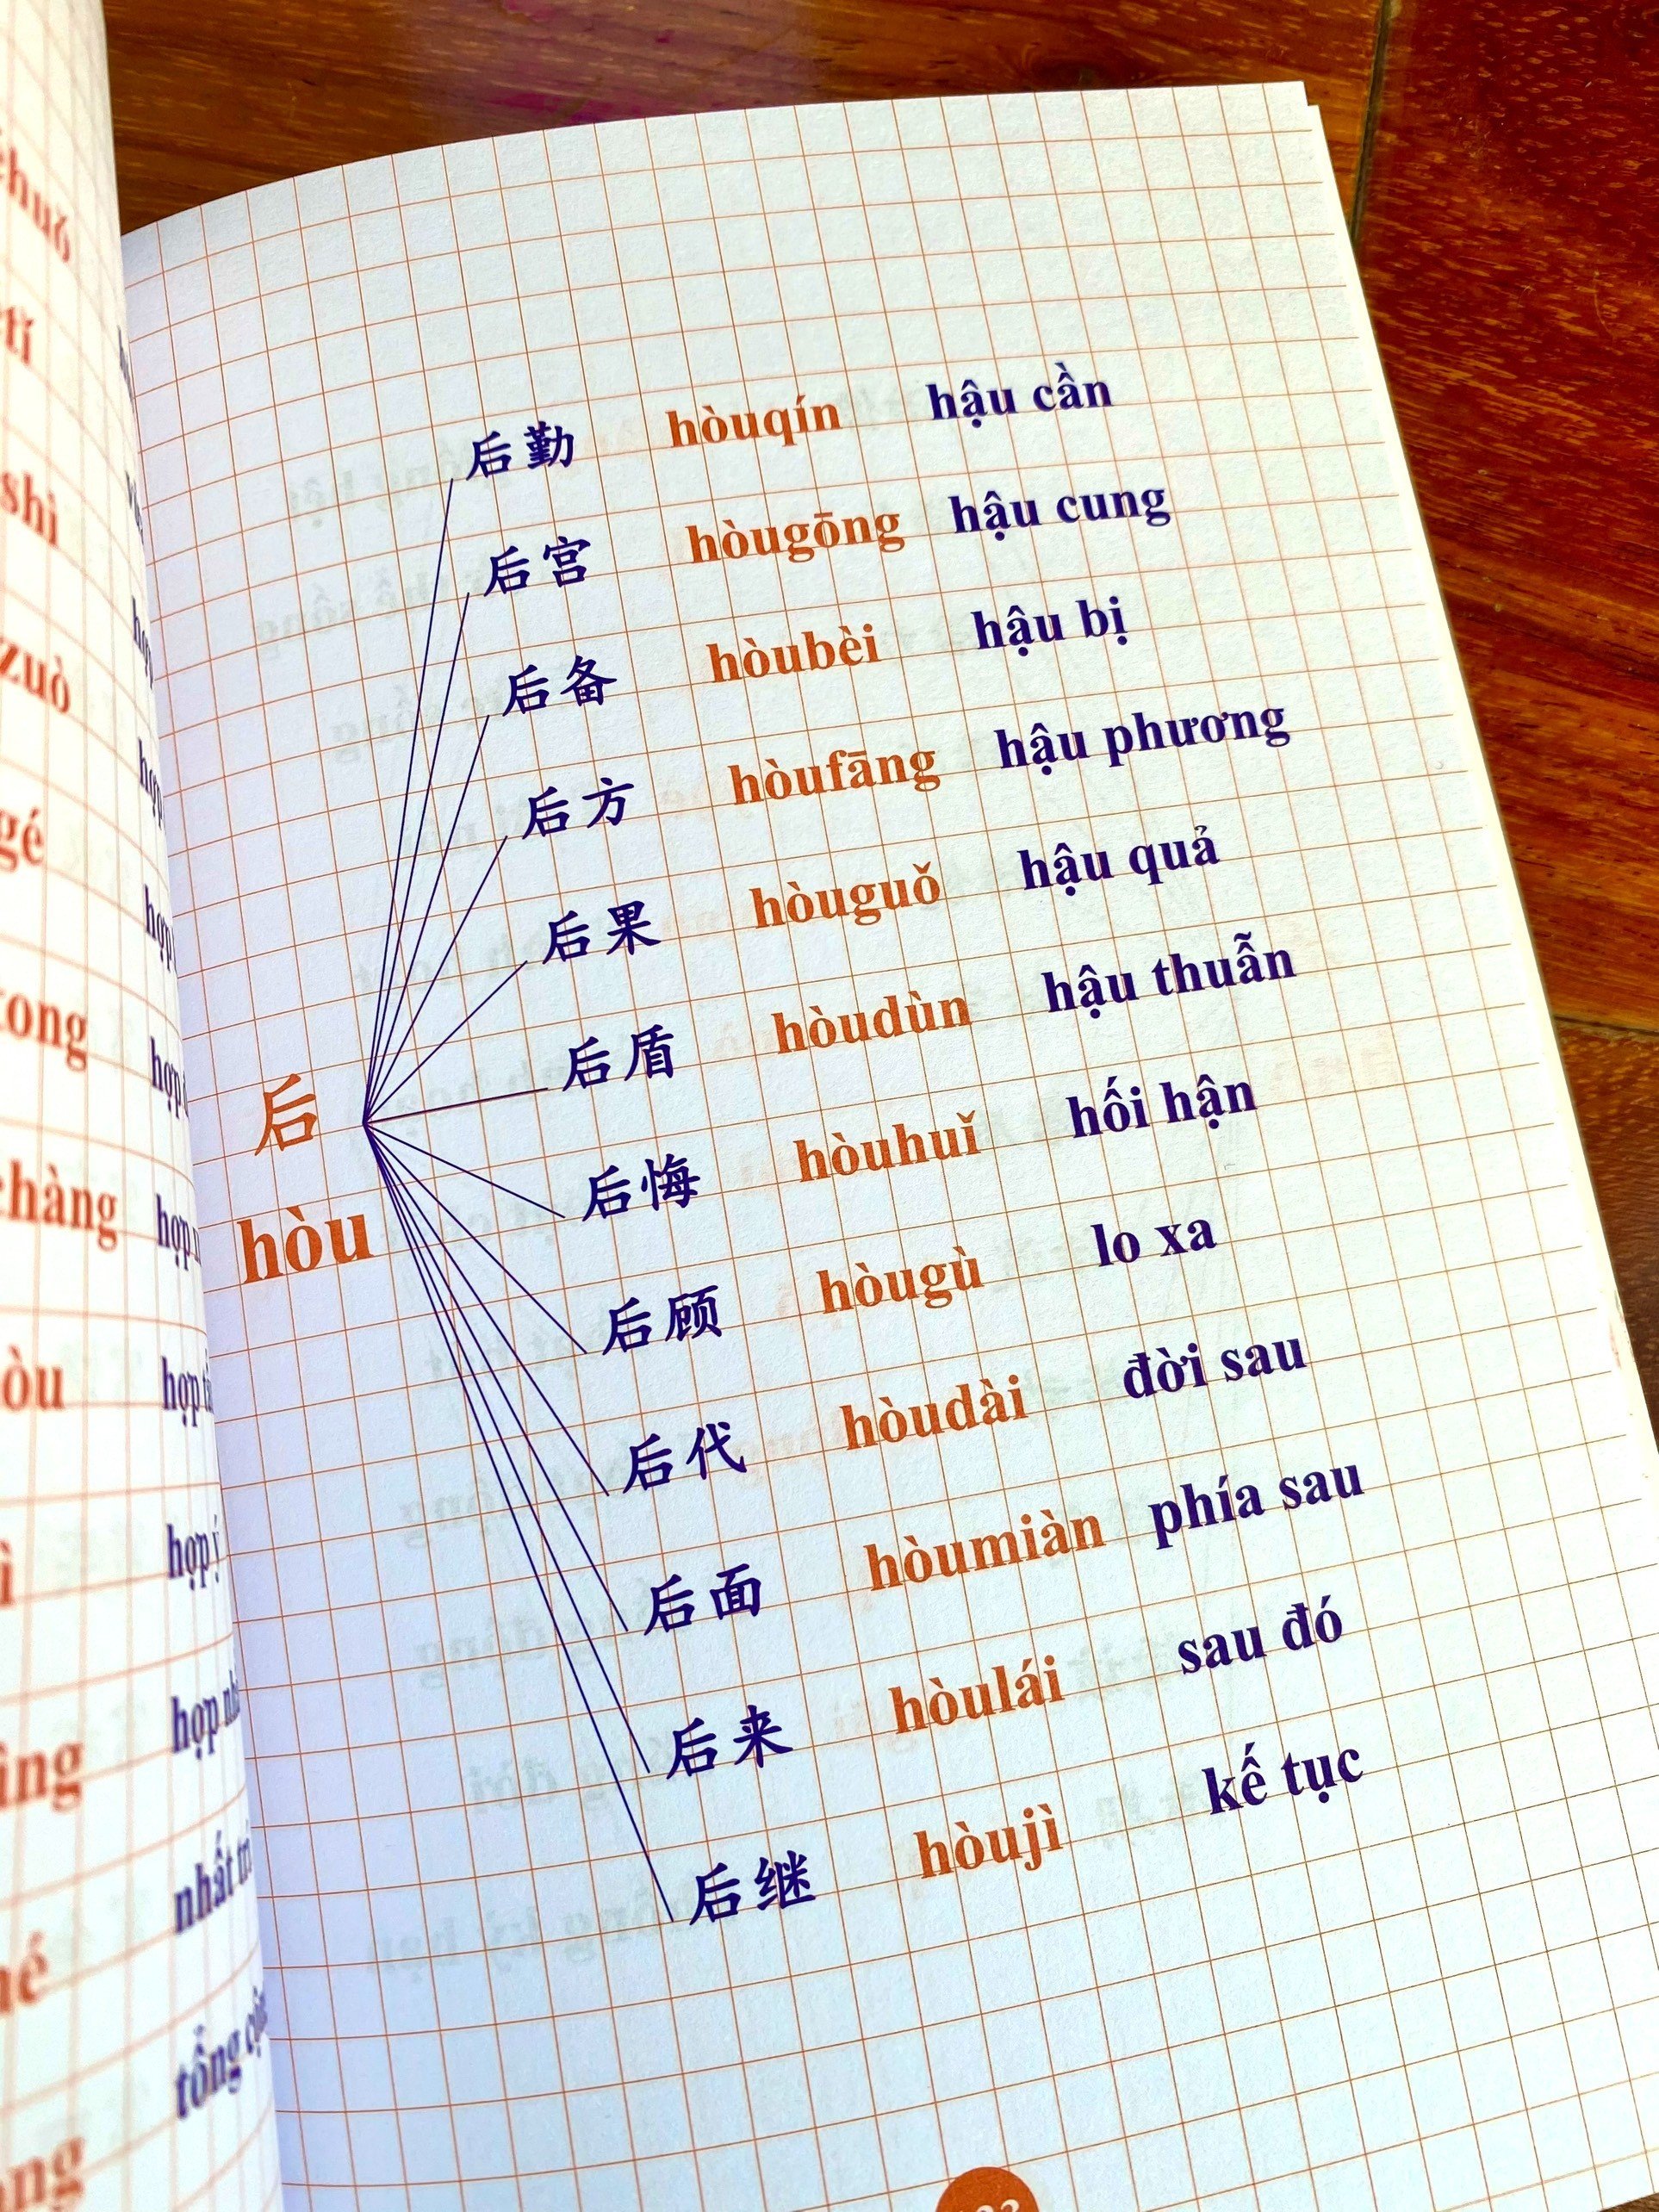 chuǒ
tí
shì
zuò
gé
tong
chàng
òu
ì
ng
é
ng
hợp
nhất trí
tổng
后勤 hòuqín hậu cần
后宫 hòugōng hậu cung
后备 hòubèi hậu bị
后方 hòufāng hậu phương
后果 hòuguǒ hậu quả
后盾 hòudùn hậu thuẫn
后
hòu
后悔 hòuhuǐ hối hận
后顾 hòugù lo xa
后代 hòudài đời sau
后面 hòumiàn phía sau
后来 hòulái sau đó
后继 hòujì kế tục